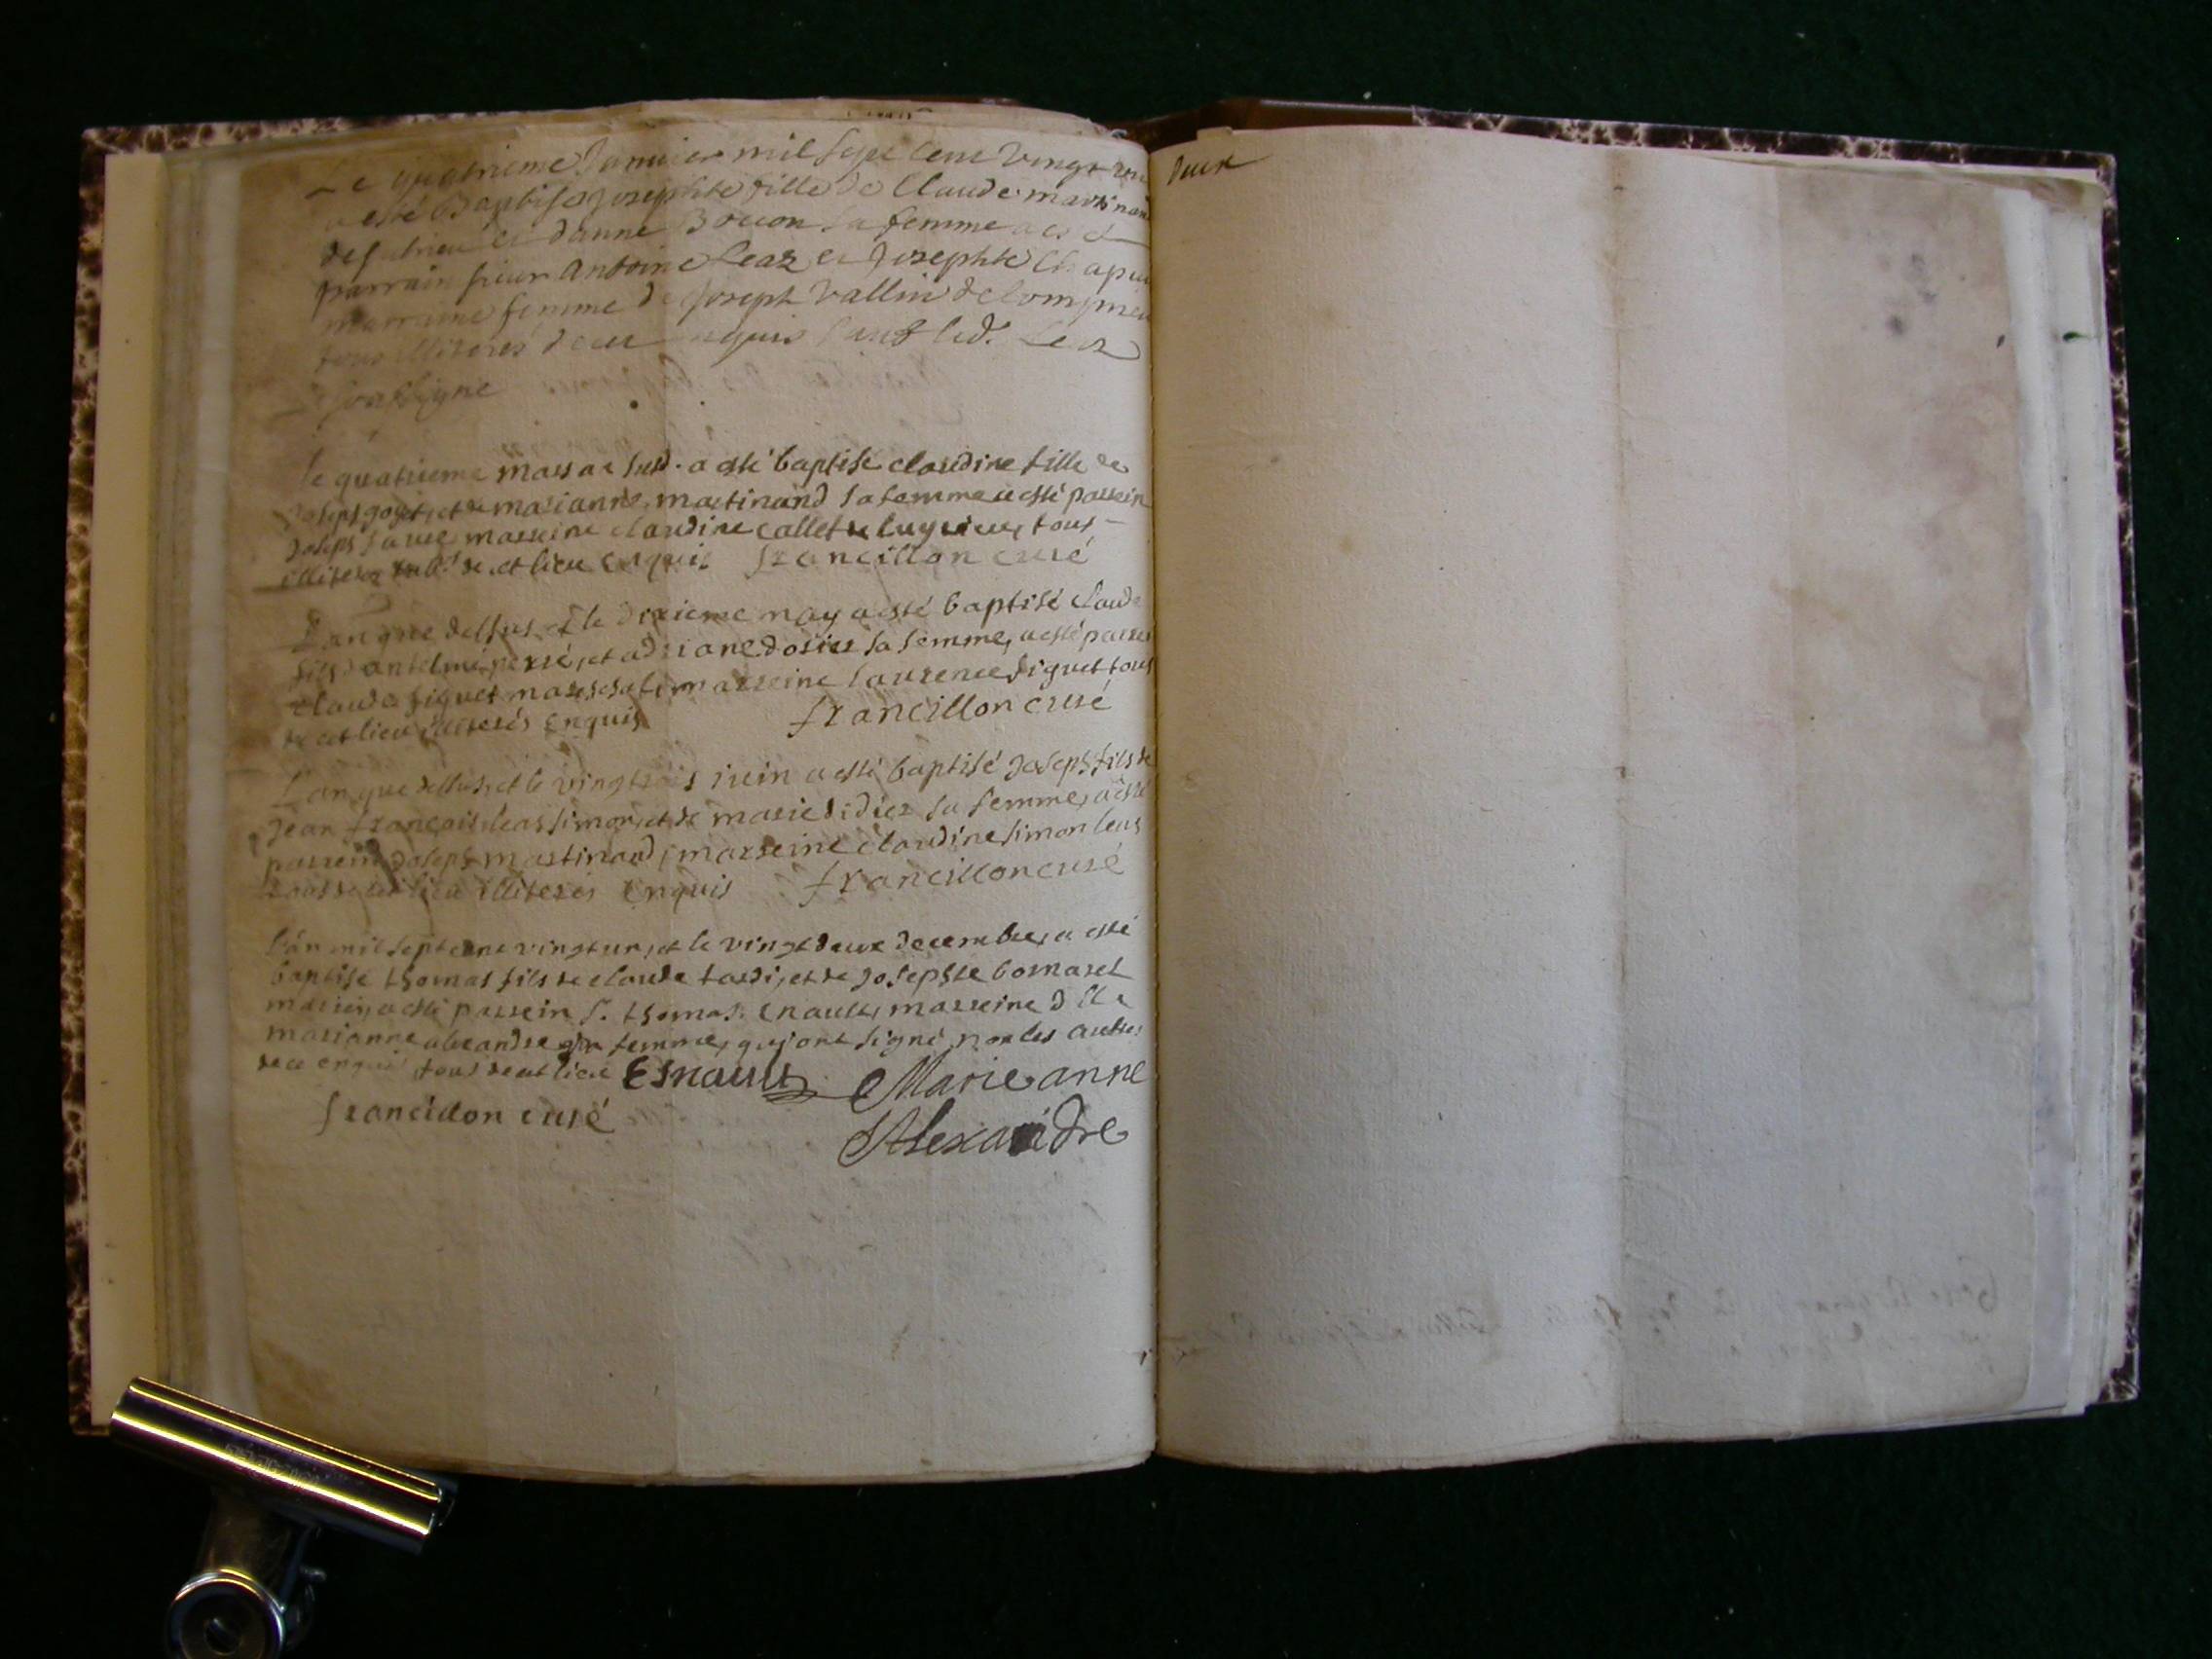 Le quatrieme Janvier mil sept cent vingt
a esté Baptisé Josephte fille de Claude martinan
et d'anne Bouon sa femme a esté
parrain sieur Antoine Leaz et Josephte Chapui
marraine femme de Joseph Vallin de lompnieu
tous illiterés de ce enquis sauf led. Leaz
Le soussigne
le quatrieme mars an susd. a esté baptisé claudine fille de
Joseph goyet, et de marianne martinand sa femme a esté parrein
Joseph marreine claudine callet de luyrieu, tous
illiterez de cet lieu enquis francillon curé
L'an que dessus et le dixieme may a esté baptisé claude
fils d'antelme perré, et adriane dosier sa femme, a esté parrei
claude figuet marreine laurence figuet tous
de cet lieu illiterés enquis francillon curé
L'an que dessus, et le vingt trois juin a esté baptisé Joseph fils de
Jean françois leas simon, et de marie didier sa femme, a esté
parrein Joseph martinand, marreine claudine simon leas
tous de cet lieu illiterés enquis francillon curé
l'an mil sept cent vingt un, et le vingt deux decembre, a esté
baptisé thomas fils de claude tardi, et de Josephte bornarel
mariés, a esté parrein S. thomas Enault, marreine dlle
marianne alexandre sa femme, qui ont signé, non les autres
de ce enquis tous de cet lieu Esnault Marie anne
francillon curé Alexandre
deux